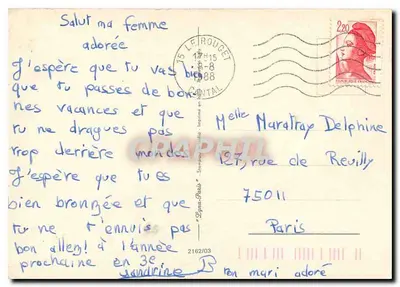 Salut ma femme
adorée
J'espère que tu vas bien
que tu passes de bon-
nes vacances et que
tu ne dragues pas
trop derrière mon dos
J'espère que tu es
bien bronzée et que
tu ne t'ennuis pas
bon allez! à l'année
prochaine en 3e
Sandrine B
ton mari adoré
15 LE ROUGET
8-8
1988
CANTAL
2,20
Melle Maratray Delphine
127, rue de Reuilly
75011
Paris
2162/03
CPRAMA